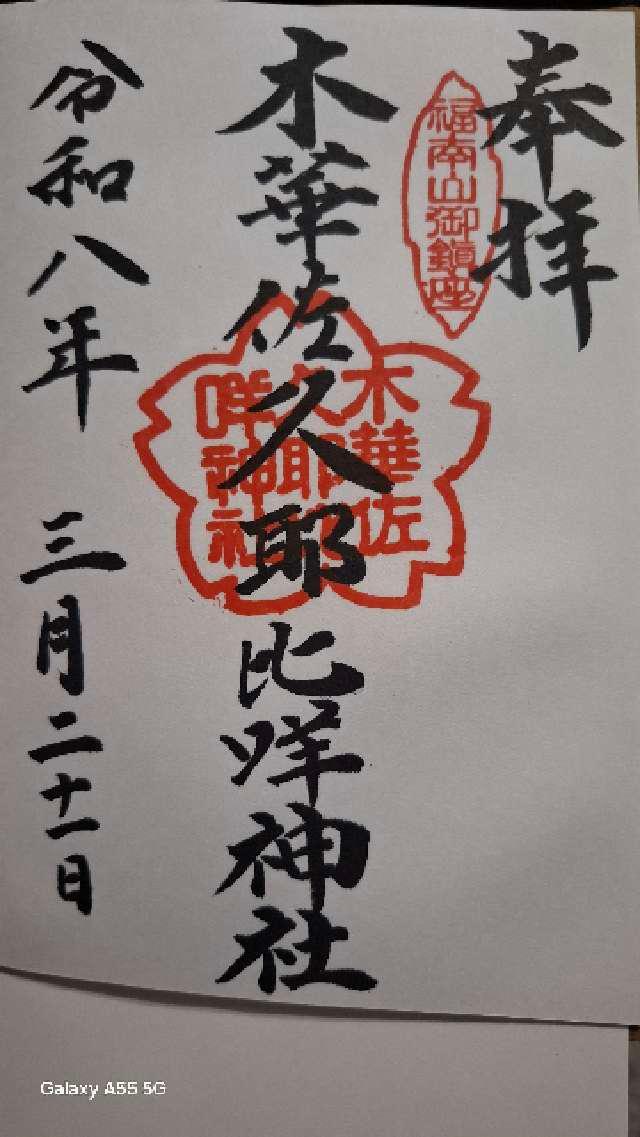 奉拝
福南山御鎮座
木華佐久耶比咩神社
木華佐
久耶比
咩神社
令和八年 三月二十一日
Galaxy A55 5G